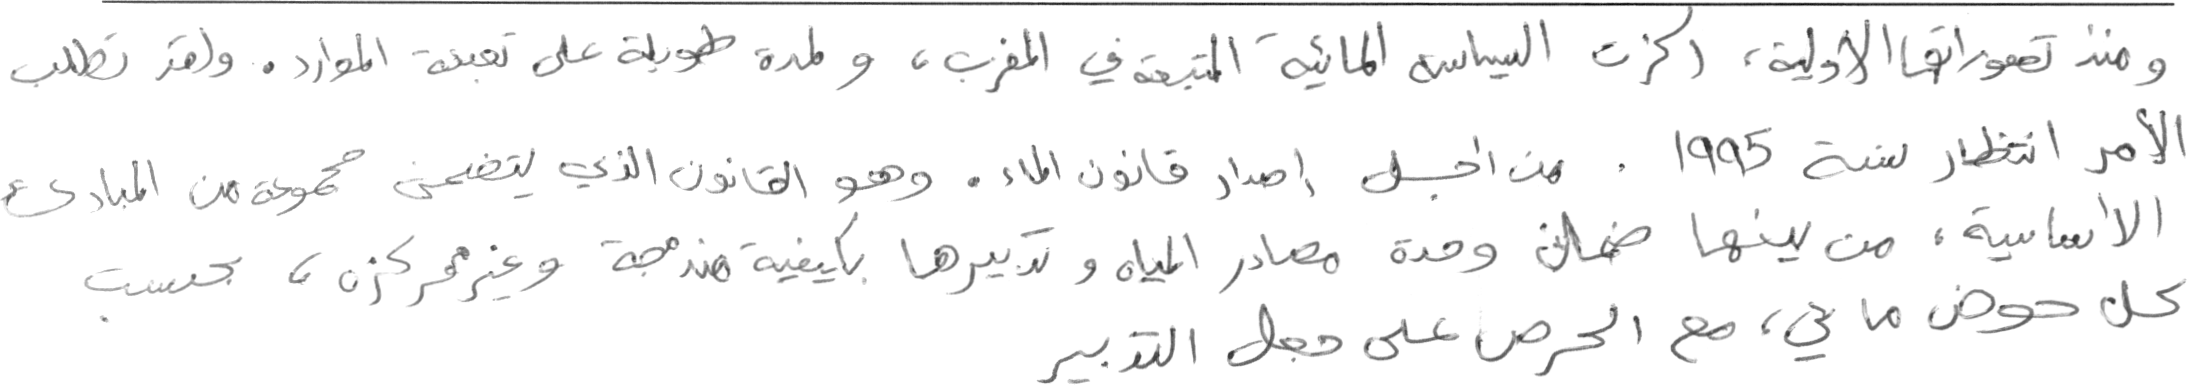 ومنذ تصوراتها الأولية، ركزت السياسة المائية المتبعة في المغرب، و لمدة طويلة على تعبئة الموارد. ولقد تطلب
الأمر انتظار سنة 1995 . من أجل إصدار قانون الماء. وهو القانون الذي يتضمن مجموعة من المبادئ
الأساسية، من بينها ضمان وحدة مصادر المياه و تدبيرها بكيفية مندمجة وغير ممركزة، بحسب
كل حوض مائي، مع الحرص على جعل التدبير